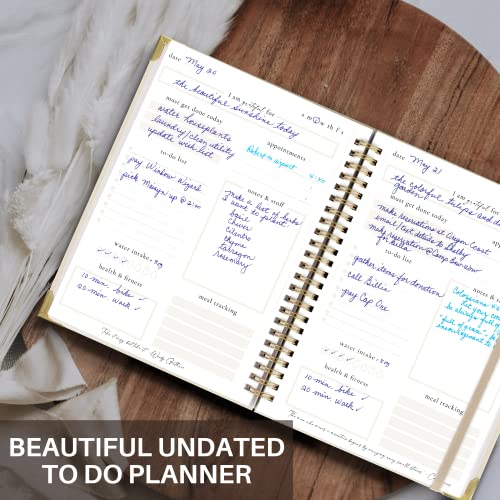 date May 20
I am grateful for
s m t w th f s
the beautiful sunshine today
must get done today
water houseplants
laundry/clean utility
update wish list
appointments
Robert to airport 4:30
to-do list
pay Window Wizard
pick Mason up @ 2:00
notes & stuff
make a list of herbs
I want to plant:
basil
chives
cilantro
thyme
tarragon
rosemary
water intake
health & fitness
10 min. bike ✓
20 min. walk ✓
meal tracking
date May 21
I am grateful
the colorful tulips and
garden
must get done today
make reservations at Oregon Coast
email/text details to Shelby
make reservation @ Camp Bow Wow
to-do list
gather items for donation
call Billie
pay Cap One
notes &
water intake
health & fitness
10 min. bike ✓
20 min. walk ✓
meal tracking
BEAUTIFUL UNDATED
TO DO PLANNER